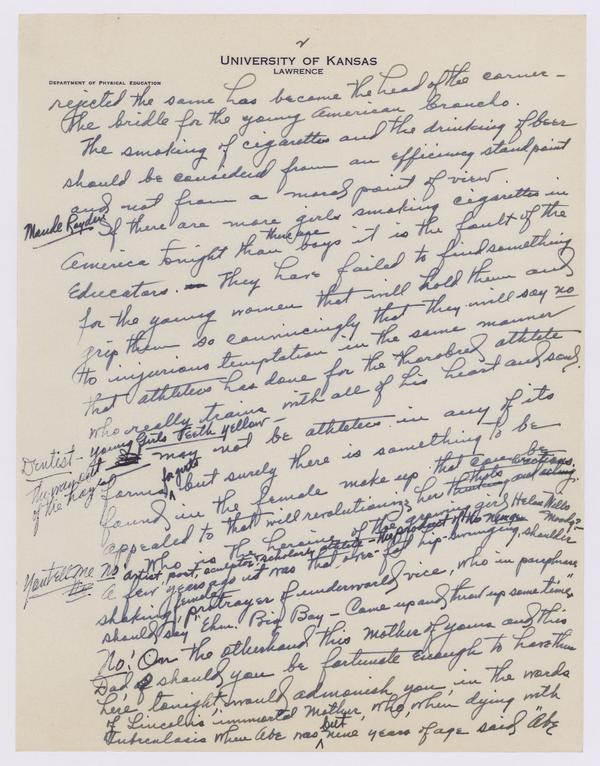 2
UNIVERSITY OF KANSAS
LAWRENCE
DEPARTMENT OF PHYSICAL EDUCATION
rejected the same has become the head of the corner –
the bridle for the young American broncho.
The smoking of cigarettes and the drinking of beer
should be considered from an efficiency standpoint
and not from a moral point of view.
Maude Royden If there are more girls smoking cigarettes in
America tonight than there are boys it is the fault of the
Educators. They have failed to find something
for the young women that will hold them and
grip them so convincingly that they will say no
to injurious temptation in the same manner
that athletics has done for the thorobred athlete
who really trains with all of his heart and soul.
Dentist – young Girls Teeth yellow –
may not be athletics in any of its
forms for girls but surely there is something to be
found in the female make up that can be
appealed to that will revolutionize her thinking and acting.
No. Who is the heroine of the growing girl Helen Wills Moody?
artist, poet, sculptor, scholarly athlete – the product of the
You tell me a few years ago it was that hip-swinging, shoulder
shaking female portrayer of underworld vice, who in paraphrase
should say "Ehm. Big Boy – Come up and throw up sometime."
No! On the other hand this mother of yours and this
Dad should you be fortunate enough to have them
here tonight would admonish you, in the words
of Lincoln's immortal Mother, who, when dying with
Tuberculosis when Abe was but nine years of age said, "Abe